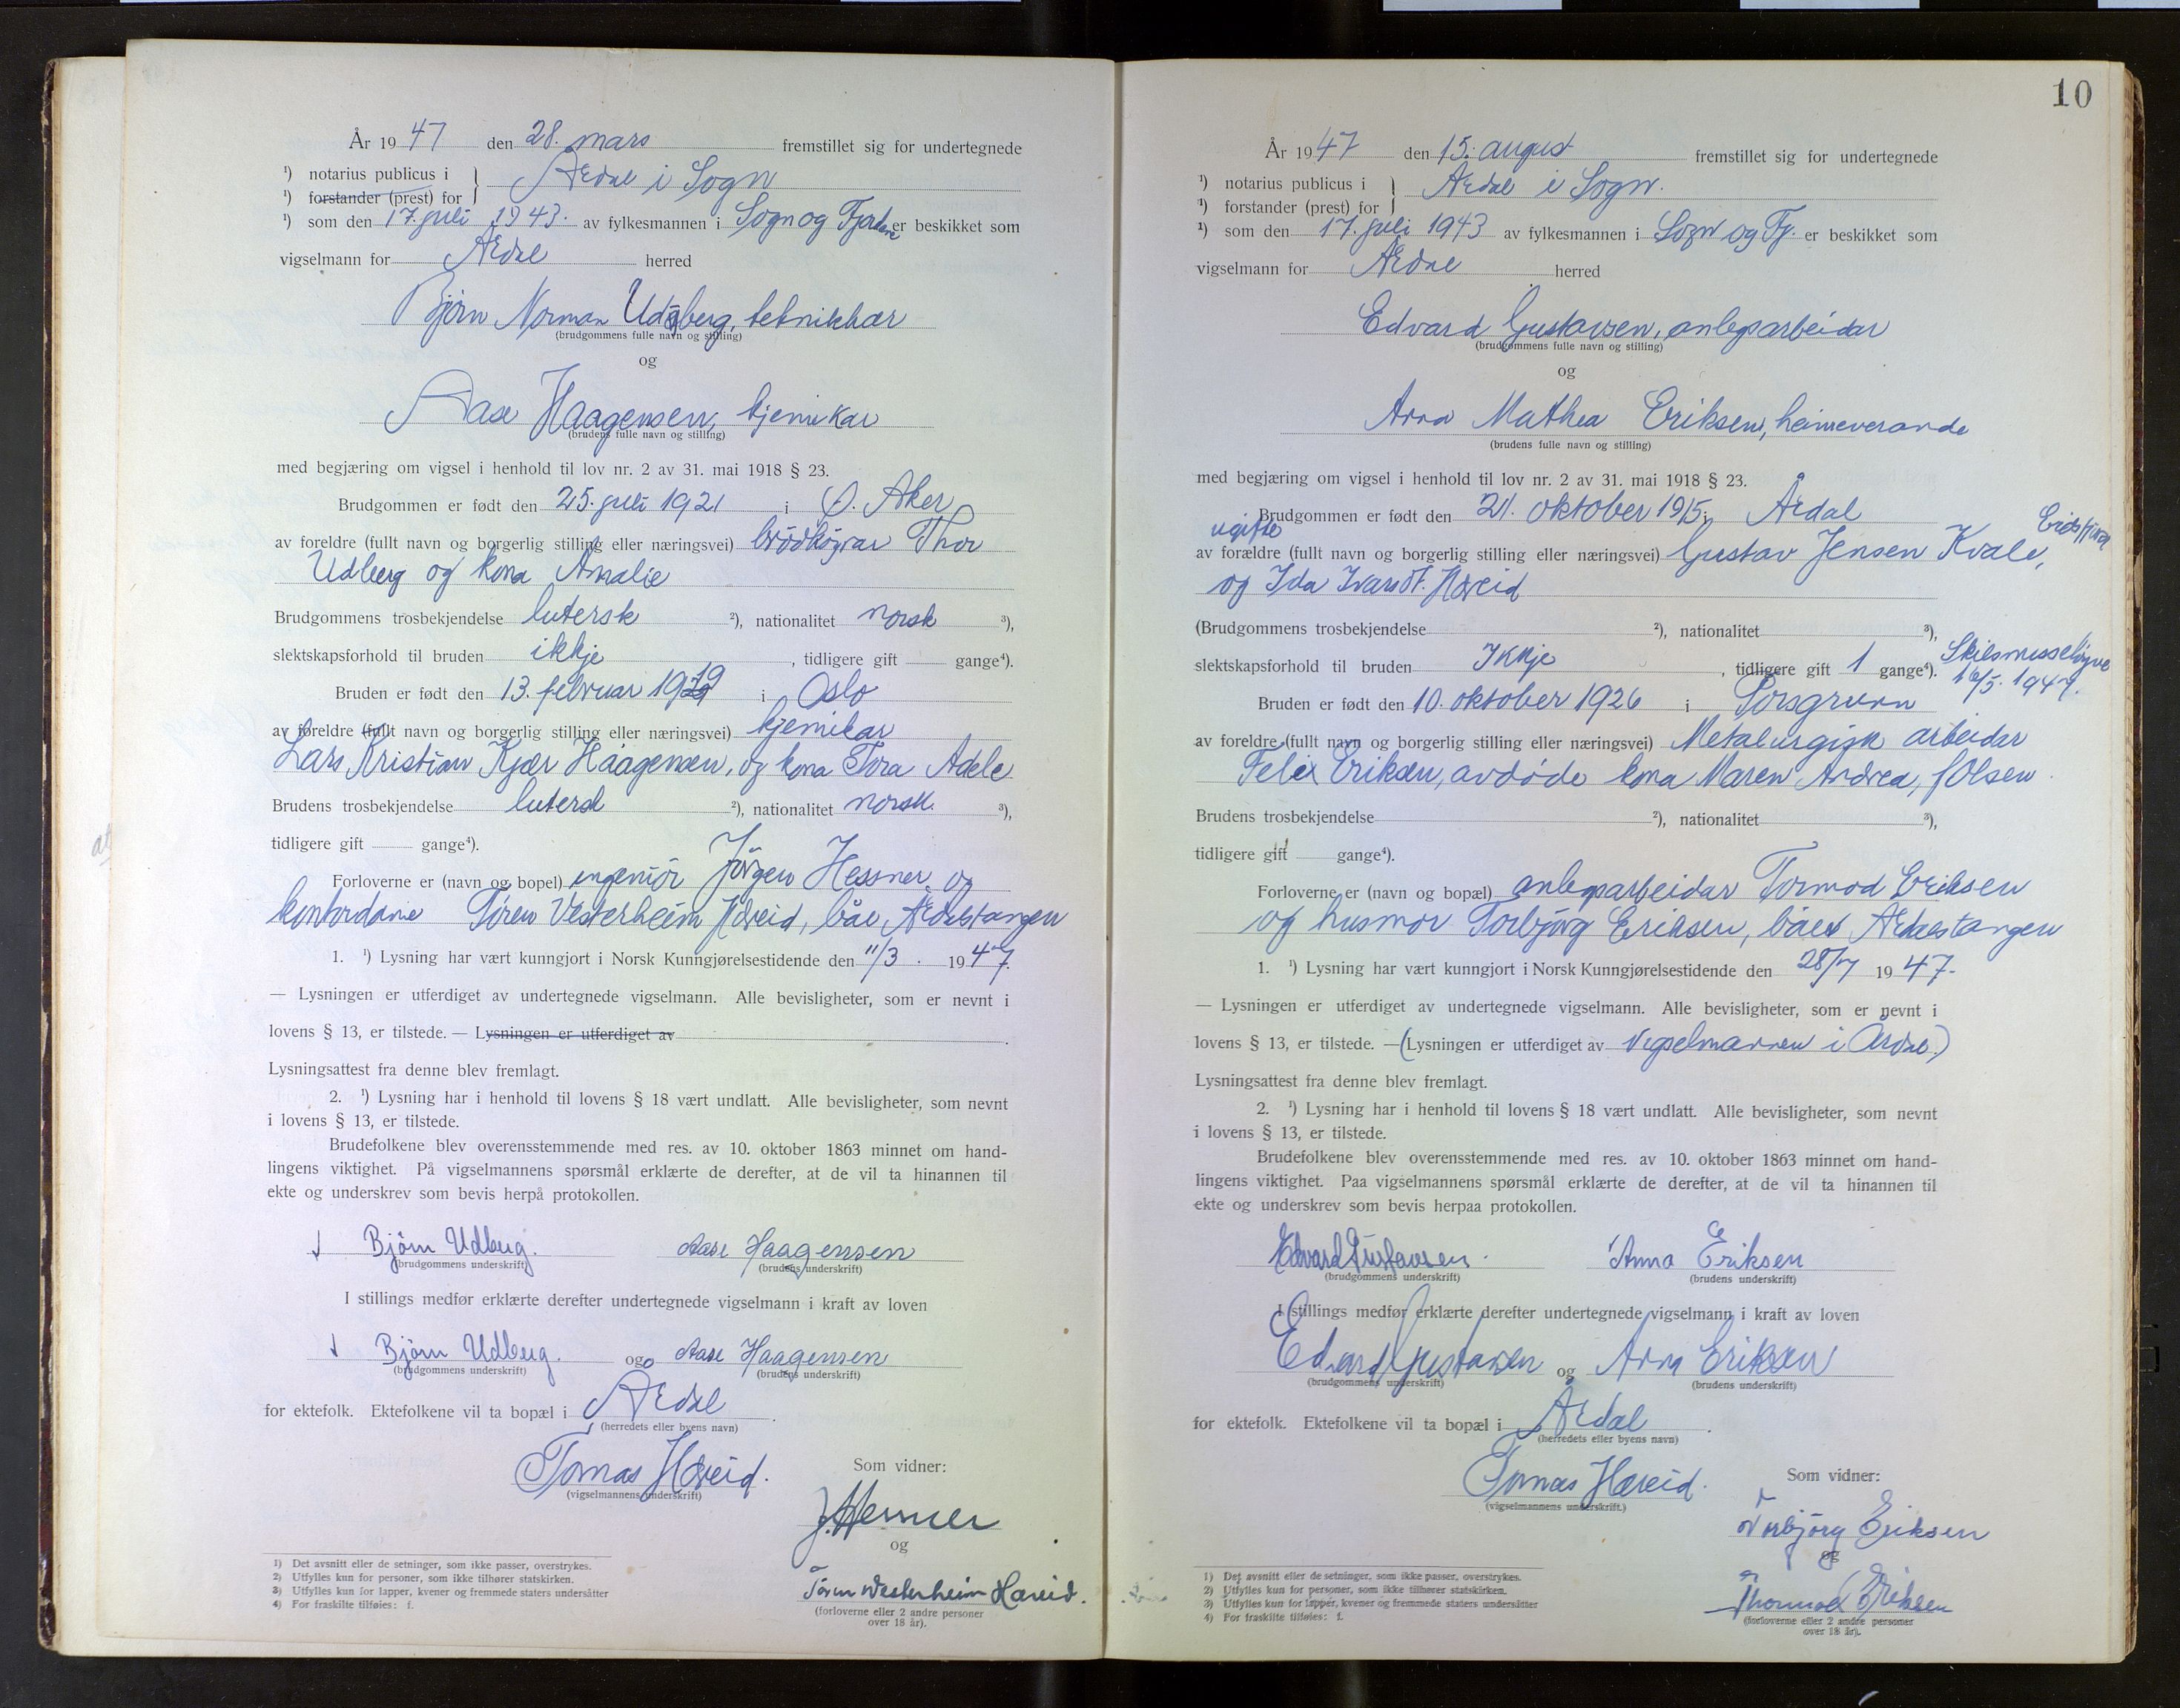 År 1947 den 28. mars fremstillet sig for undertegnede
¹) notarius publicus i } Årdal i Sogn
¹) forstander (prest) for
¹) som den 17. juli 1943. av fylkesmannen i Sogn og Fjordane er beskikket som
vigselmann for Årdal herred
Bjørn Norman Udberg, teknikkar
(brudgommens fulle navn og stilling)
og
Aase Haagensen, kjemikar
(brudens fulle navn og stilling)
med begjæring om vigsel i henhold til lov nr. 2 av 31. mai 1918 § 23.
Brudgommen er født den 25. juli 1921 i Ø. Aker
av foreldre (fullt navn og borgerlig stilling eller næringsvei) brödköyrar Thor
Udberg og kona Amalie
Brudgommens trosbekjendelse lutersk ²), nationalitet norsk ³),
slektskapsforhold til bruden ikkje , tidligere gift gange⁴).
Bruden er født den 13. februar 1919 i Oslo
av foreldre (fullt navn og borgerlig stilling eller næringsvei) kjemikar
Lars Kristian Kjær Haagensen, og kona Tora Adele
Brudens trosbekjendelse lutersk ²), nationalitet norsk. ³),
tidligere gift gange⁴).
Forloverne er (navn og bopel) ingeniör Jörgen Hessner og
kontordame Tören Vesterheim Hæreid, båe Årdalstangen
1. ¹) Lysning har vært kunngjort i Norsk Kunngjørelsestidende den 11/3. 1947.
— Lysningen er utferdiget av undertegnede vigselmann. Alle bevisligheter, som er nevnt i
lovens § 13, er tilstede. — Lysningen er utferdiget av .
Lysningsattest fra denne blev fremlagt.
2. ¹) Lysning har i henhold til lovens § 18 vært undlatt. Alle bevisligheter, som nevnt
i lovens § 13, er tilstede.
Brudefolkene blev overensstemmende med res. av 10. oktober 1863 minnet om hand-
lingens viktighet. På vigselmannens spørsmål erklærte de derefter, at de vil ta hinannen til
ekte og underskrev som bevis herpå protokollen.
Björn Udberg. Aase Haagensen
(brudgommens underskrift) (brudens underskrift)
I stillings medfør erklærte derefter undertegnede vigselmann i kraft av loven
Björn Udberg. og Aase Haagensen
(brudgommens underskrift) (brudens underskrift)
for ektefolk. Ektefolkene vil ta bopæl i Årdal .
(herredets eller byens navn)
Tomas Hæreid.
(vigselmannens underskrift)
Som vidner:
J. Hessner
og
Tören Westerheim Hæreid.
(forloverne eller 2 andre personer
over 18 år).
1) Det avsnitt eller de setninger, som ikke passer, overstrykes.
2) Utfylles kun for personer, som ikke tilhører statskirken.
3) Utfylles kun for lapper, kvener og fremmede staters undersåtter
4) For fraskilte tilføies: f.
10
År 1947 den 15. august fremstillet sig for undertegnede
¹) notarius publicus i } Årdal i Sogn.
¹) forstander (prest) for
¹) som den 17. juli 1943 av fylkesmannen i Sogn og Fj. er beskikket som
vigselmann for Årdal herred
Edvard Gustavsen, anlegsarbeidar
(brudgommens fulle navn og stilling)
og
Anna Mathea Eriksen, heimeverande
(brudens fulle navn og stilling)
med begjæring om vigsel i henhold til lov nr. 2 av 31. mai 1918 § 23.
Brudgommen er født den 21. oktober 1915 i Årdal
ugifte
av forældre (fullt navn og borgerlig stilling eller næringsvei) Gustav Jensen Kvale,
og Ida Ivarsdt. Hæreid
(Brudgommens trosbekjendelse ²), nationalitet ³),
slektskapsforhold til bruden Ikkje , tidligere gift 1 gange⁴). Skilsmisseløyve
16/5. 1947.
Bruden er født den 10. oktober 1926 i Porsgrunn
av foreldre (fullt navn og borgerlig stilling eller næringsvei) Metalurgisk arbeidar
Felix Eriksen, avdöde kona Maren Andrea, f. Olsen
Brudens trosbekjendelse ²), nationalitet ³),
tidligere gift gange⁴).
Forloverne er (navn og bopæl) anlegsarbeidar Tormod Eriksen
og husmor Torbjörg Eriksen, båe Årdalstangen
1. ¹) Lysning har vært kunngjort i Norsk Kunngjørelsestidende den 28/7 1947.
— Lysningen er utferdiget av undertegnede vigselmann. Alle bevisligheter, som er nevnt i
lovens § 13, er tilstede. —(Lysningen er utferdiget av Vigselmannen i Årdal.)
Lysningsattest fra denne blev fremlagt.
2. ¹) Lysning har i henhold til lovens § 18 vært undlatt. Alle bevisligheter, som nevnt
i lovens § 13, er tilstede.
Brudefolkene blev overensstemmende med res. av 10. oktober 1863 minnet om hand-
lingens viktighet. Paa vigselmannens spørsmål erklærte de derefter, at de vil ta hinannen til
ekte og underskrev som bevis herpaa protokollen.
Edvard Gustavsen. Anna Eriksen
(brudgommens underskrift) (brudens underskrift)
I stillings medfør erklærte derefter undertegnede vigselmann i kraft av loven
Edvard Gustavsen og Anna Eriksen
(brudgommens underskrift) (brudens underskrift)
for ektefolk. Ektefolkene vil ta bopæl i Årdal .
(herredets eller byens navn)
Tomas Hæreid.
(vigselmannens underskrift.)
Som vidner:
Torbjörg Eriksen
og
Thormod Eriksen
(forloverne eller 2 andre personer
over 18 år).
1) Det avsnitt eller de setninger, som ikke passer, overstrykes.
2) Utfylles kun for personer, som ikke tilhører statskirken.
3) Utfylles kun for lapper, kvener og fremmede staters undersåtter
4) For fraskilte tilføies: f.